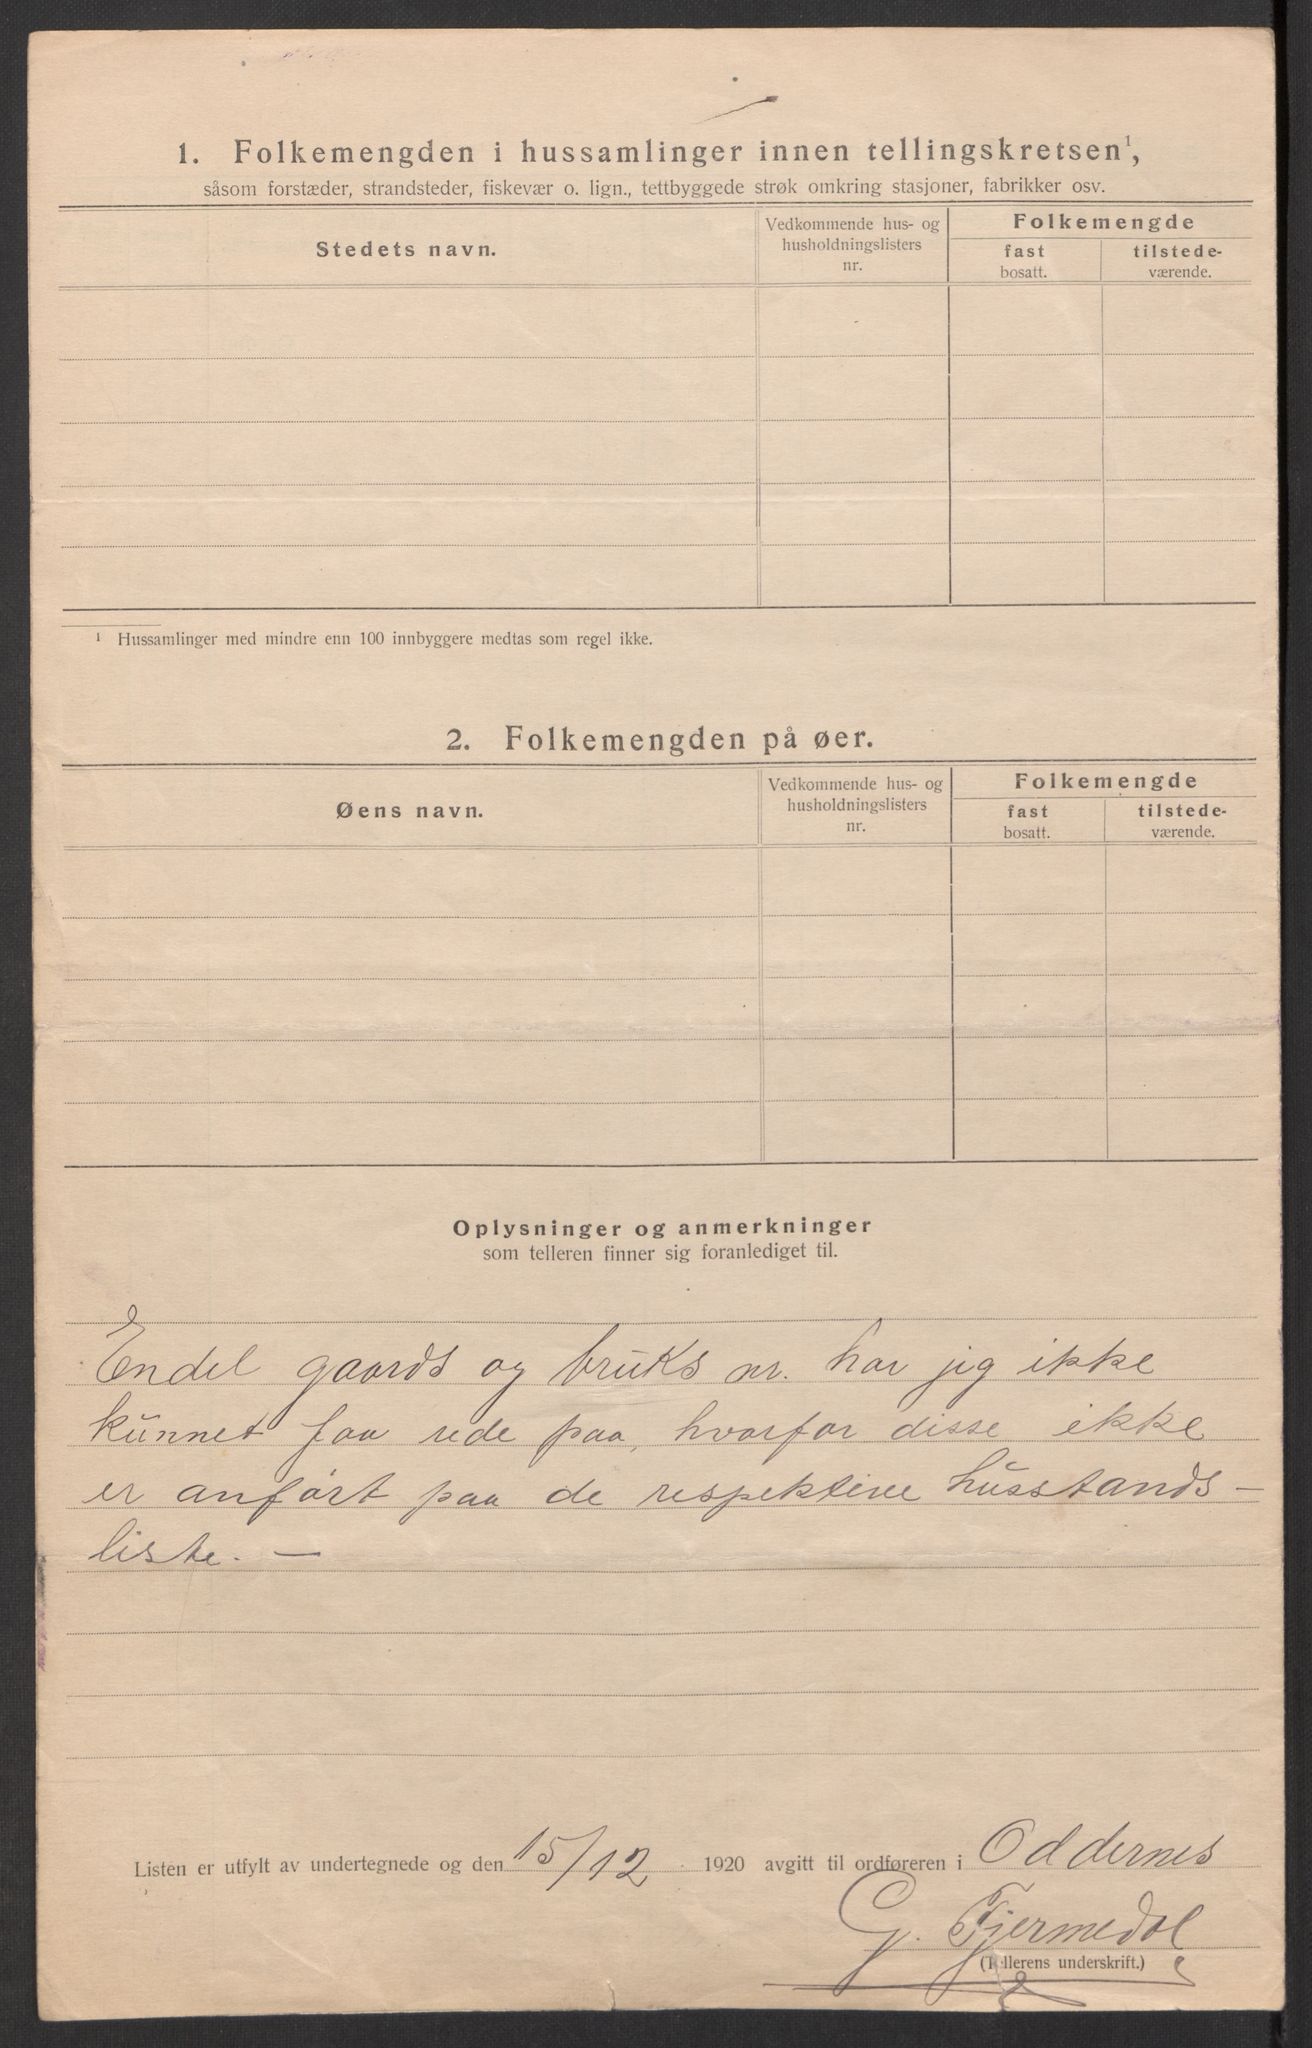 1. Folkemengden i hussamlinger innen tellingskretsen¹,
såsom forstæder, strandsteder, fiskevær o. lign., tettbyggede strøk omkring stasjoner, fabrikker osv.
Stedets navn.
Vedkommende hus- og
husholdningslisters
nr.
Folkemengde
fast
bosatt.
tilstede-
værende.
¹ Hussamlinger med mindre enn 100 innbyggere medtas som regel ikke.
2. Folkemengden på øer.
Øens navn.
Vedkommende hus- og
husholdningslisters
nr.
Folkemengde
fast
bosatt.
tilstede-
værende.
Oplysninger og anmerkninger
som telleren finner sig foranlediget til.
Endel gaards og bruks nr. har jeg ikke
kunnet faa rede paa, hvorfor disse ikke
er anført paa de respektive husstands-
liste. —
Listen er utfylt av undertegnede og den 15/12 1920 avgitt til ordføreren i Oddernes
G. Fjermedal
(Tellerens underskrift.)